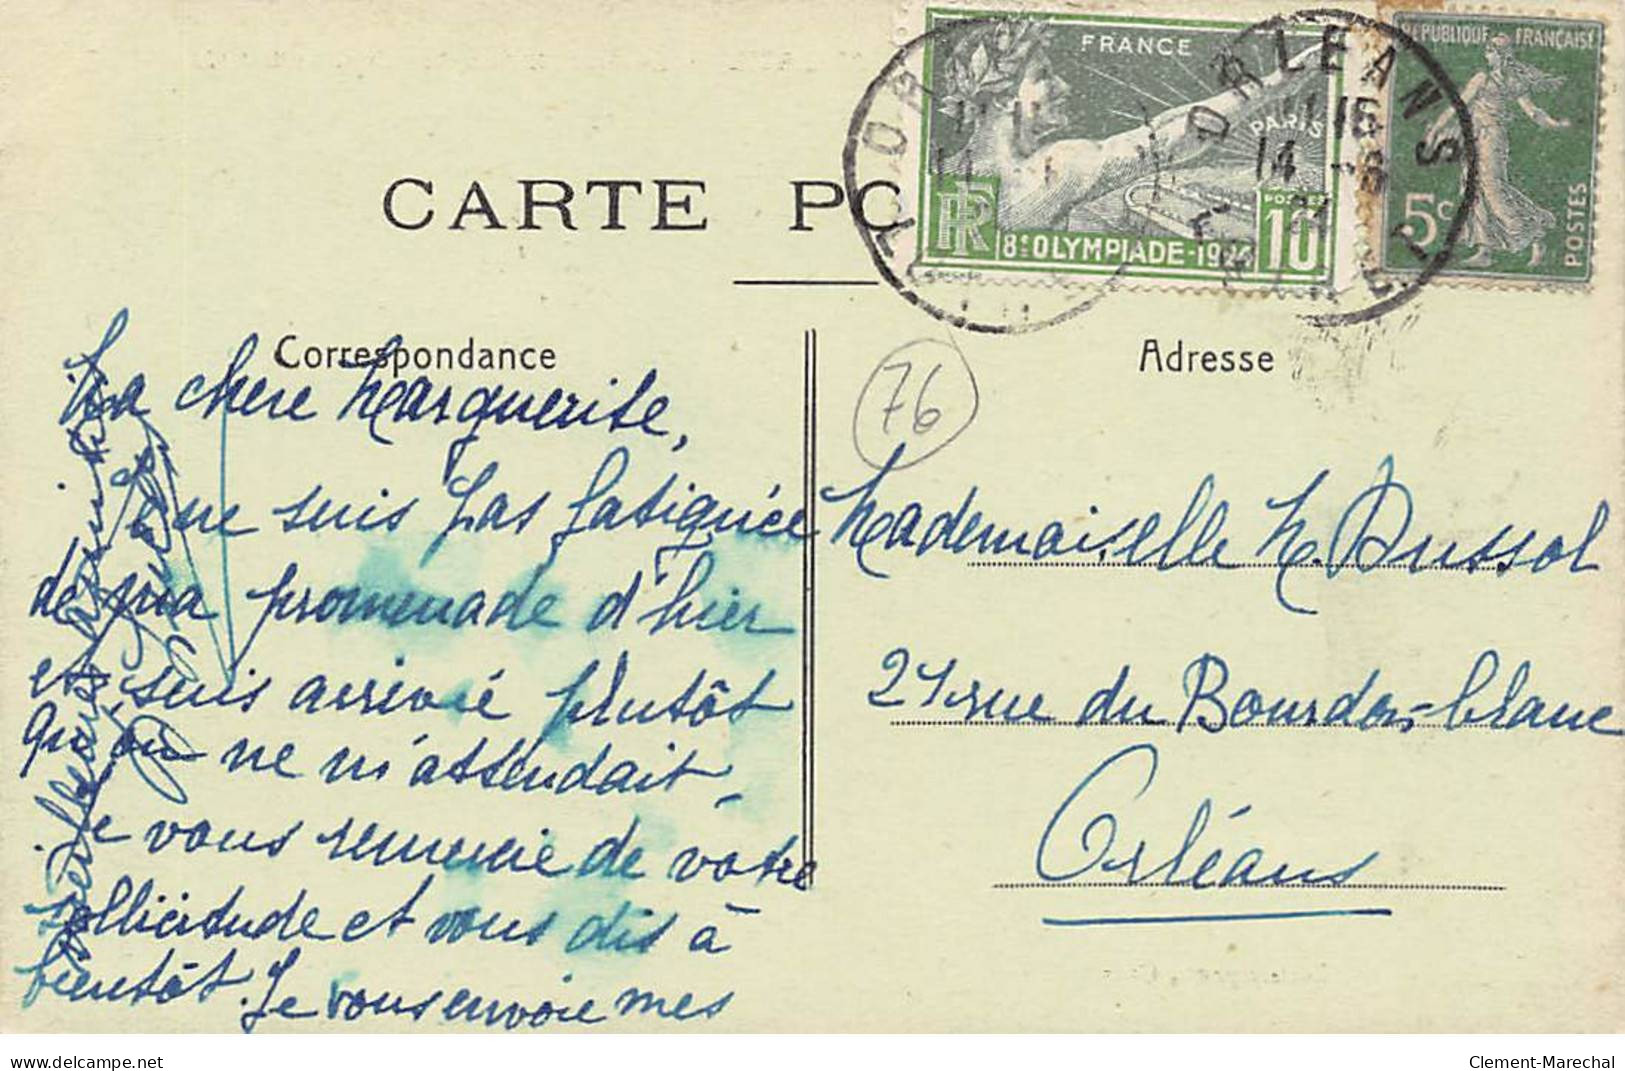 CARTE PO
FRANCE
PARIS
POSTES
RF
10
8e OLYMPIADE-1924
REPUBLIQUE FRANÇAISE
5c
POSTES
ORLEANS
11 15
14 -6
24
LOIRET
Correspondance
Adresse
76
Ma chère Marguerite,
Je ne suis pas fatiguée
de ma promenade d'hier
et suis arrivée plutôt
qu'on ne m'attendait -
Je vous remercie de votre
sollicitude et vous dis à
bientôt. Je vous envoie mes
meilleures
Mademoiselle M. Dussol
21 rue du Bourdon-blanc
Orléans
delcampe.net
Clement-Marechal